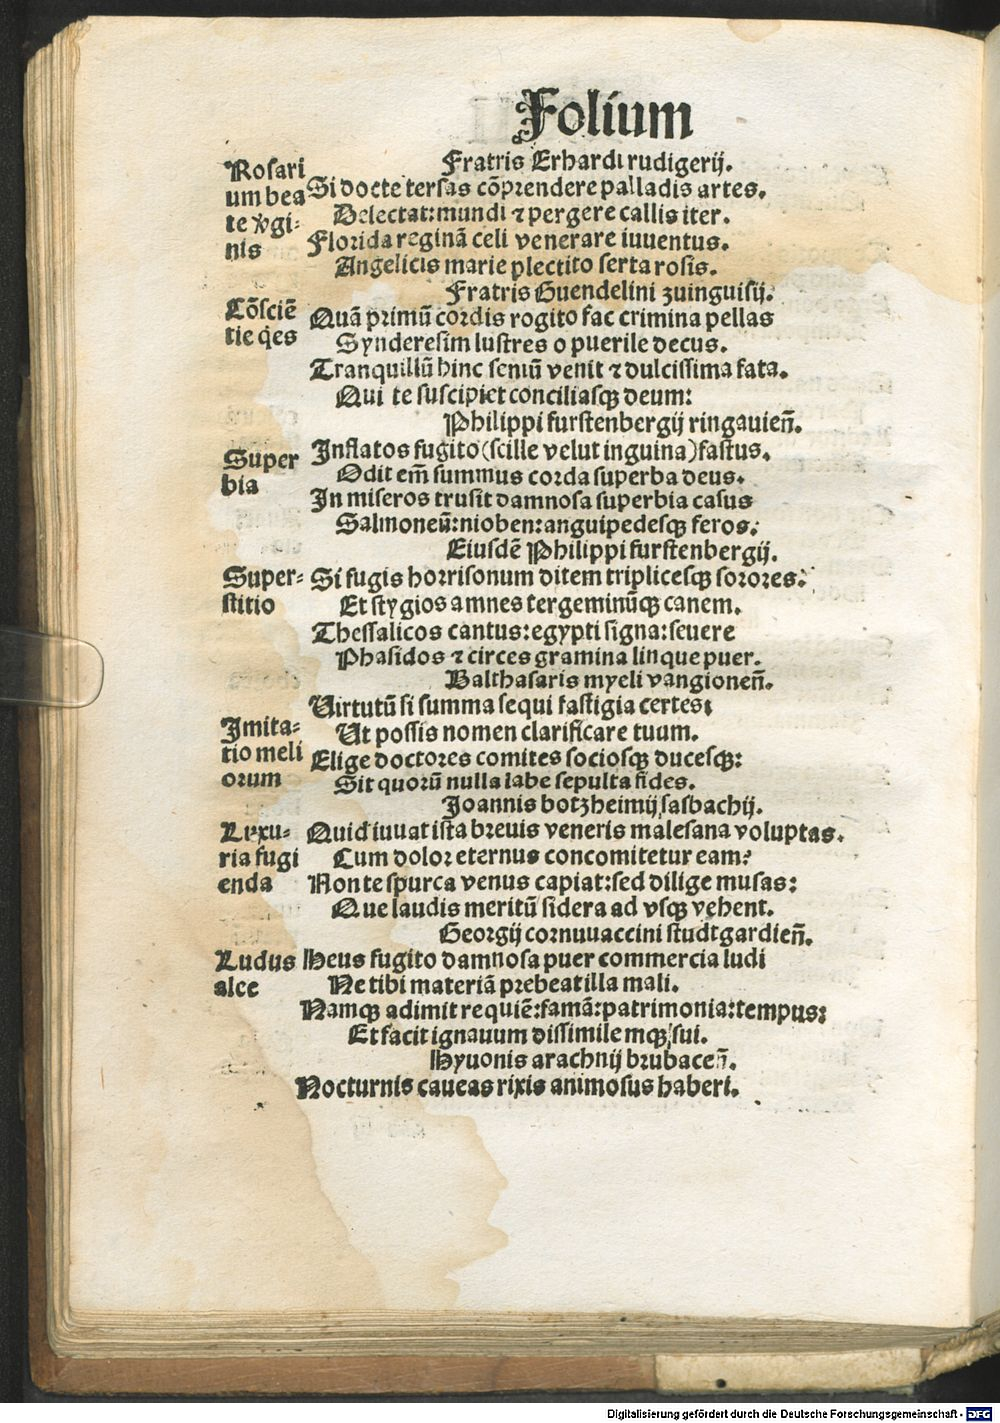 Folium
Fratris Erhardi rudigerij.
Rosari
um bea
te v̄gi-
nis
Si docte tersas cōprendere palladis artes.
Delectat: mundi ⁊ pergere callis iter.
Florida reginā celi venerare iuuentus.
Angelicis marie plectito serta rosis.
Fratris Guendelini zuinguisij.
Cōsciē
tie q̇es
Quā primū cordis rogito fac crimina pellas
Synderesim lustres o puerile decus.
Tranquillū hinc seniū venit ⁊ dulcissima fata.
Qui te suscipiet conciliasqꝫ deum:
Philippi furstenbergij ringauien̄.
Super
bia
Inflatos fugito (scille velut inguina) fastus.
Odit em̄ summus corda superba deus.
In miseros trusit damnosa superbia casus
Salmoneū: nioben: anguipedesqꝫ feros.
Eiusdē Philippi furstenbergij.
Super-
stitio
Si fugis horrisonum ditem triplicesqꝫ sorores:
Et stygios amnes tergeminūqꝫ canem.
Thessalicos cantus: egypti signa: seuere
Phasidos ⁊ circes gramina linque puer.
Balthasaris myeli vangionen̄.
Imita-
tio meli
orum
Virtutū si summa sequi fastigia certes:
Ut possis nomen clarificare tuum.
Elige doctores comites sociosqꝫ ducesqꝫ:
Sit quorū nulla labe sepulta fides.
Joannis botzheimij sasbachij.
Luxu-
ria fugi
enda
Quid iuuat ista breuis veneris malesana voluptas.
Cum dolor eternus concomitetur eam?
Non te spurca venus capiat: sed dilige musas:
Que laudis meritū sidera ad vsqꝫ vehent.
Georgij cornuuaccini studtgardien̄.
Ludus
alee
Heus fugito damnosa puer commercia ludi
Ne tibi materiā prebeat illa mali.
Namqꝫ adimit requiē: famā: patrimonia: tempus:
Et facit ignauum dissimilemqꝫ sui.
Hyuonis arachnij brubacen̄.
Nocturnis caueas rixis animosus haberi.
Digitalisierung gefördert durch die Deutsche Forschungsgemeinschaft - DFG